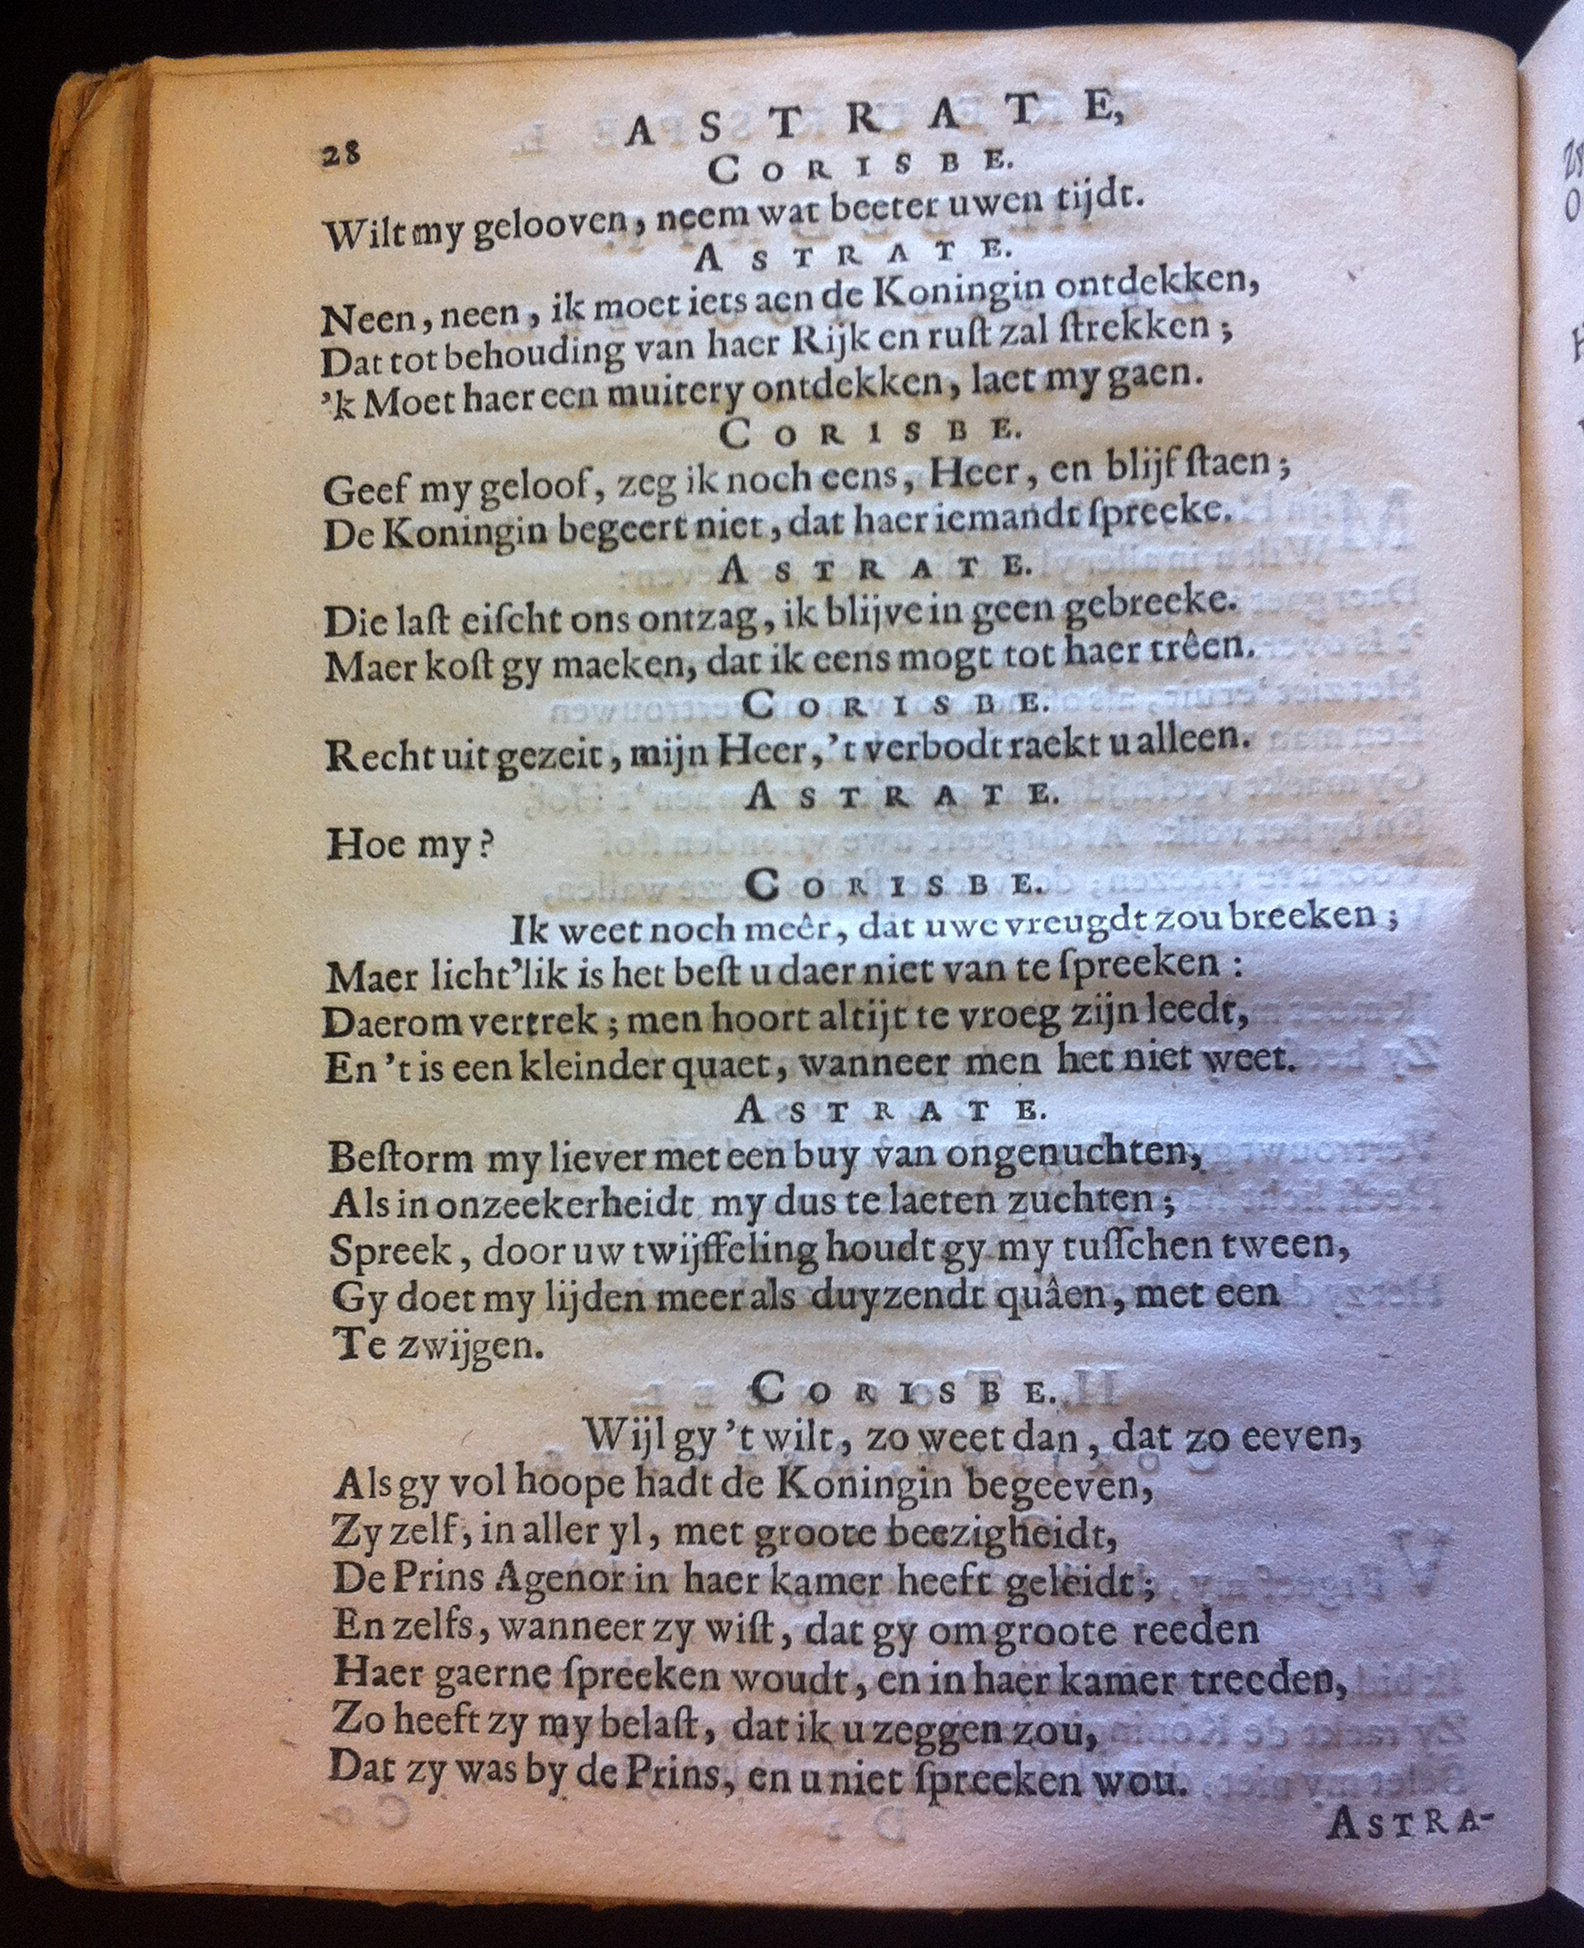 28
ASTRATE,
CORISBE.
Wilt my gelooven, neem wat beeter uwen tijdt.
ASTRATE.
Neen, neen, ik moet iets aen de Koningin ontdekken,
Dat tot behouding van haer Rijk en ruſt zal ſtrekken;
'k Moet haer een muitery ontdekken, laet my gaen.
CORISBE.
Geef my geloof, zeg ik noch eens, Heer, en blijf ſtaen;
De Koningin begeert niet, dat haer iemandt ſpreeke.
ASTRATE.
Die laſt eiſcht ons ontzag, ik blijve in geen gebreeke.
Maer koſt gy maeken, dat ik eens mogt tot haer trêen.
CORISBE.
Recht uit gezeit, mijn Heer, 't verbodt raekt u alleen.
ASTRATE.
Hoe my?
CORISBE.
Ik weet noch meêr, dat uwe vreugdt zou breeken;
Maer licht'lik is het beſt u daer niet van te ſpreeken:
Daerom vertrek; men hoort altijt te vroeg zijn leedt,
En 't is een kleinder quaet, wanneer men het niet weet.
ASTRATE.
Beſtorm my liever met een buy van ongenuchten,
Als in onzeekerheidt my dus te laeten zuchten;
Spreek, door uw twijffeling houdt gy my tuſſchen tween,
Gy doet my lijden meer als duyzendt quâen, met een
Te zwijgen.
CORISBE.
Wijl gy 't wilt, zo weet dan, dat zo eeven,
Als gy vol hoope hadt de Koningin begeeven,
Zy zelf, in aller yl, met groote beezigheidt,
De Prins Agenor in haer kamer heeft geleidt;
En zelfs, wanneer zy wiſt, dat gy om groote reeden
Haer gaerne ſpreeken woudt, en in haer kamer treeden,
Zo heeft zy my belaſt, dat ik u zeggen zou,
Dat zy was by de Prins, en u niet ſpreeken wou.
ASTRA-